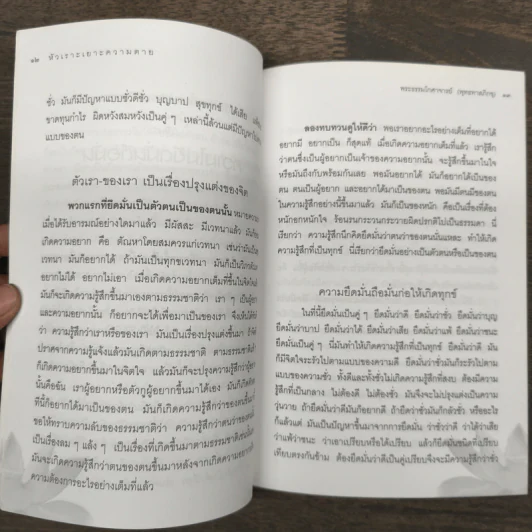 ๑๒ หัวเราะเยาะความตาย
ชั่ว มันก็มีปัญหาแบบชั่วดีชั่ว บุญบาป สุขทุกข์ ได้เสีย
ขาดทุนกำไร ผิดหวังสมหวังเป็นคู่ ๆ เหล่านี้ล้วนแต่มีปัญหา
แบบของตน
ตัวเรา-ของเรา เป็นเรื่องปรุงแต่งของจิต
พวกแรกที่ยึดมั่นเป็นตัวตนเป็นของตนนั้น
เมื่อได้รับอารมณ์อย่างใดมาแล้ว มีผัสสะ มีเวทนาแล้ว
เกิดความอยาก คือ ตัณหาโดยสมควรแก่เวทนา เช่นว่ามันเป็น
เวทนา มันก็อยากได้ ถ้ามันเป็นทุกขเวทนา มันก็เป็น
อยากไม่ได้ อยากไม่เอา เมื่อเกิดความอยากเต็มที่ขึ้นในจิต
มันก็จะเกิดความรู้สึกขึ้นมาเองตามธรรมชาติว่า เรา ๆ เป็นผู้
และความอยากนั้น ก็อยากจะได้เพื่อเอามาเป็นของเรา จึงเห็นได้
ว่า ความรู้สึกว่าเราหรือของเรา มันเป็นเรื่องปรุงแต่งขึ้นมา
ปราศจากความรู้แจ้งแล้วมันเกิดตามธรรมชาติ ตามธรรมชาติ
ก็เกิดความอยากขึ้นมาในจิตใจ แล้วมันก็จะปรุงเป็นความรู้สึก
นั้นคืออัน เราผู้อยากหรือตัวกูผู้อยากขึ้นมาได้เอง มันก็เกิด
ที่นี้ก็อยากได้มาเป็นของตน มันก็เกิดความรู้สึกว่าของตนขึ้น
ขอให้ทราบความลับของธรรมชาติว่า ความรู้สึกว่าตัวตนว่าของตน
เป็นเรื่องลม ๆ แล้ง ๆ เป็นเรื่องที่เกิดขึ้นมาตามธรรมชาติ
มันจะเกิดความรู้สึกว่าตนของตนขึ้นมาหลังจากเกิดความอยาก
ความต้องการอะไรอย่างเต็มที่แล้ว
พระธรรมโกศาจารย์ (พุทธทาสภิกขุ) ๑๓
ลองทบทวนดูให้ดีว่า พอเราอยากอะไรอย่างเต็มที่อยากได้
อยากมี อยากเป็น ก็สุดแท้ เมื่อความอยากเต็มที่แล้ว เรารู้สึก
ว่าตนซึ่งเป็นผู้อยากเป็นเจ้าของความอยากนั้น จะรู้สึกขึ้นมาในใจ
หรือมันถึงกับพร้อมกันเลย พอมันอยากได้ มันก็อยากได้เป็นของ
ตน ตนเป็นผู้อยาก และอยากได้มาเป็นของตน พอมันมีตนมีของตน
ในความอยากอย่างนี้ขึ้นมาแล้ว มันก็เป็นของหนัก คือเป็นเรื่องที่ต้อง
หนักอกหนักใจ ร้อนรนกระวนกระวายผิดปรกติไปเป็นธรรมดา นี่
เรียกว่า ความรู้สึกนึกคิดยึดมั่นว่าตนว่าของตนนั่นแหละ ทำให้เกิด
ความรู้สึกที่เป็นทุกข์ นี่เรียกว่ายึดมั่นอย่างเป็นตัวตนหรือเป็นของตน
ความยึดมั่นถือมั่นก่อให้เกิดทุกข์
ในที่นี้ยึดมั่นเป็นคู่ ๆ ยึดมั่นว่าดี ยึดมั่นว่าชั่ว ยึดมั่นว่าบุญ
ยึดมั่นว่าบาป ยึดมั่นว่าได้ ยึดมั่นว่าเสีย ยึดมั่นว่าแพ้ ยึดมั่นว่าชนะ
ยึดมั่นเป็นคู่ ๆ นี่มันทำให้เกิดความรู้สึกที่เป็นทุกข์ ยึดมั่นว่าดี มัน
ก็มีจิตใจระรัวไปตามแบบของความดี ยึดมั่นว่าชั่วมันก็ระรัวไปตาม
แบบของความชั่ว ทั้งดีและทั้งชั่วไม่เกิดความรู้สึกที่สงบ ต้องมีความ
รู้สึกที่เป็นกลาง ไม่ต้องดี ไม่ต้องชั่ว มันจึงจะไม่ปรุงแต่งเป็นความ
วุ่นวาย ถ้ายึดมั่นว่าดีมันก็อยากดี ถ้ายึดว่าชั่วมันก็กลัวชั่ว หรืออะไร
ก็แล้วแต่ มันเป็นปัญหาขึ้นมาจากการยึดมั่น ว่าชั่วว่าดี ว่าได้ว่าเสีย
ว่าแพ้ว่าชนะ ว่าเอาเปรียบหรือได้เปรียบ แล้วก็ยึดมั่นชนิดที่เปรียบ
เทียบตรงกันข้าม ต้องยึดมั่นว่าดีเป็นคู่เปรียบจึงจะมีความรู้สึกว่าชั่ว